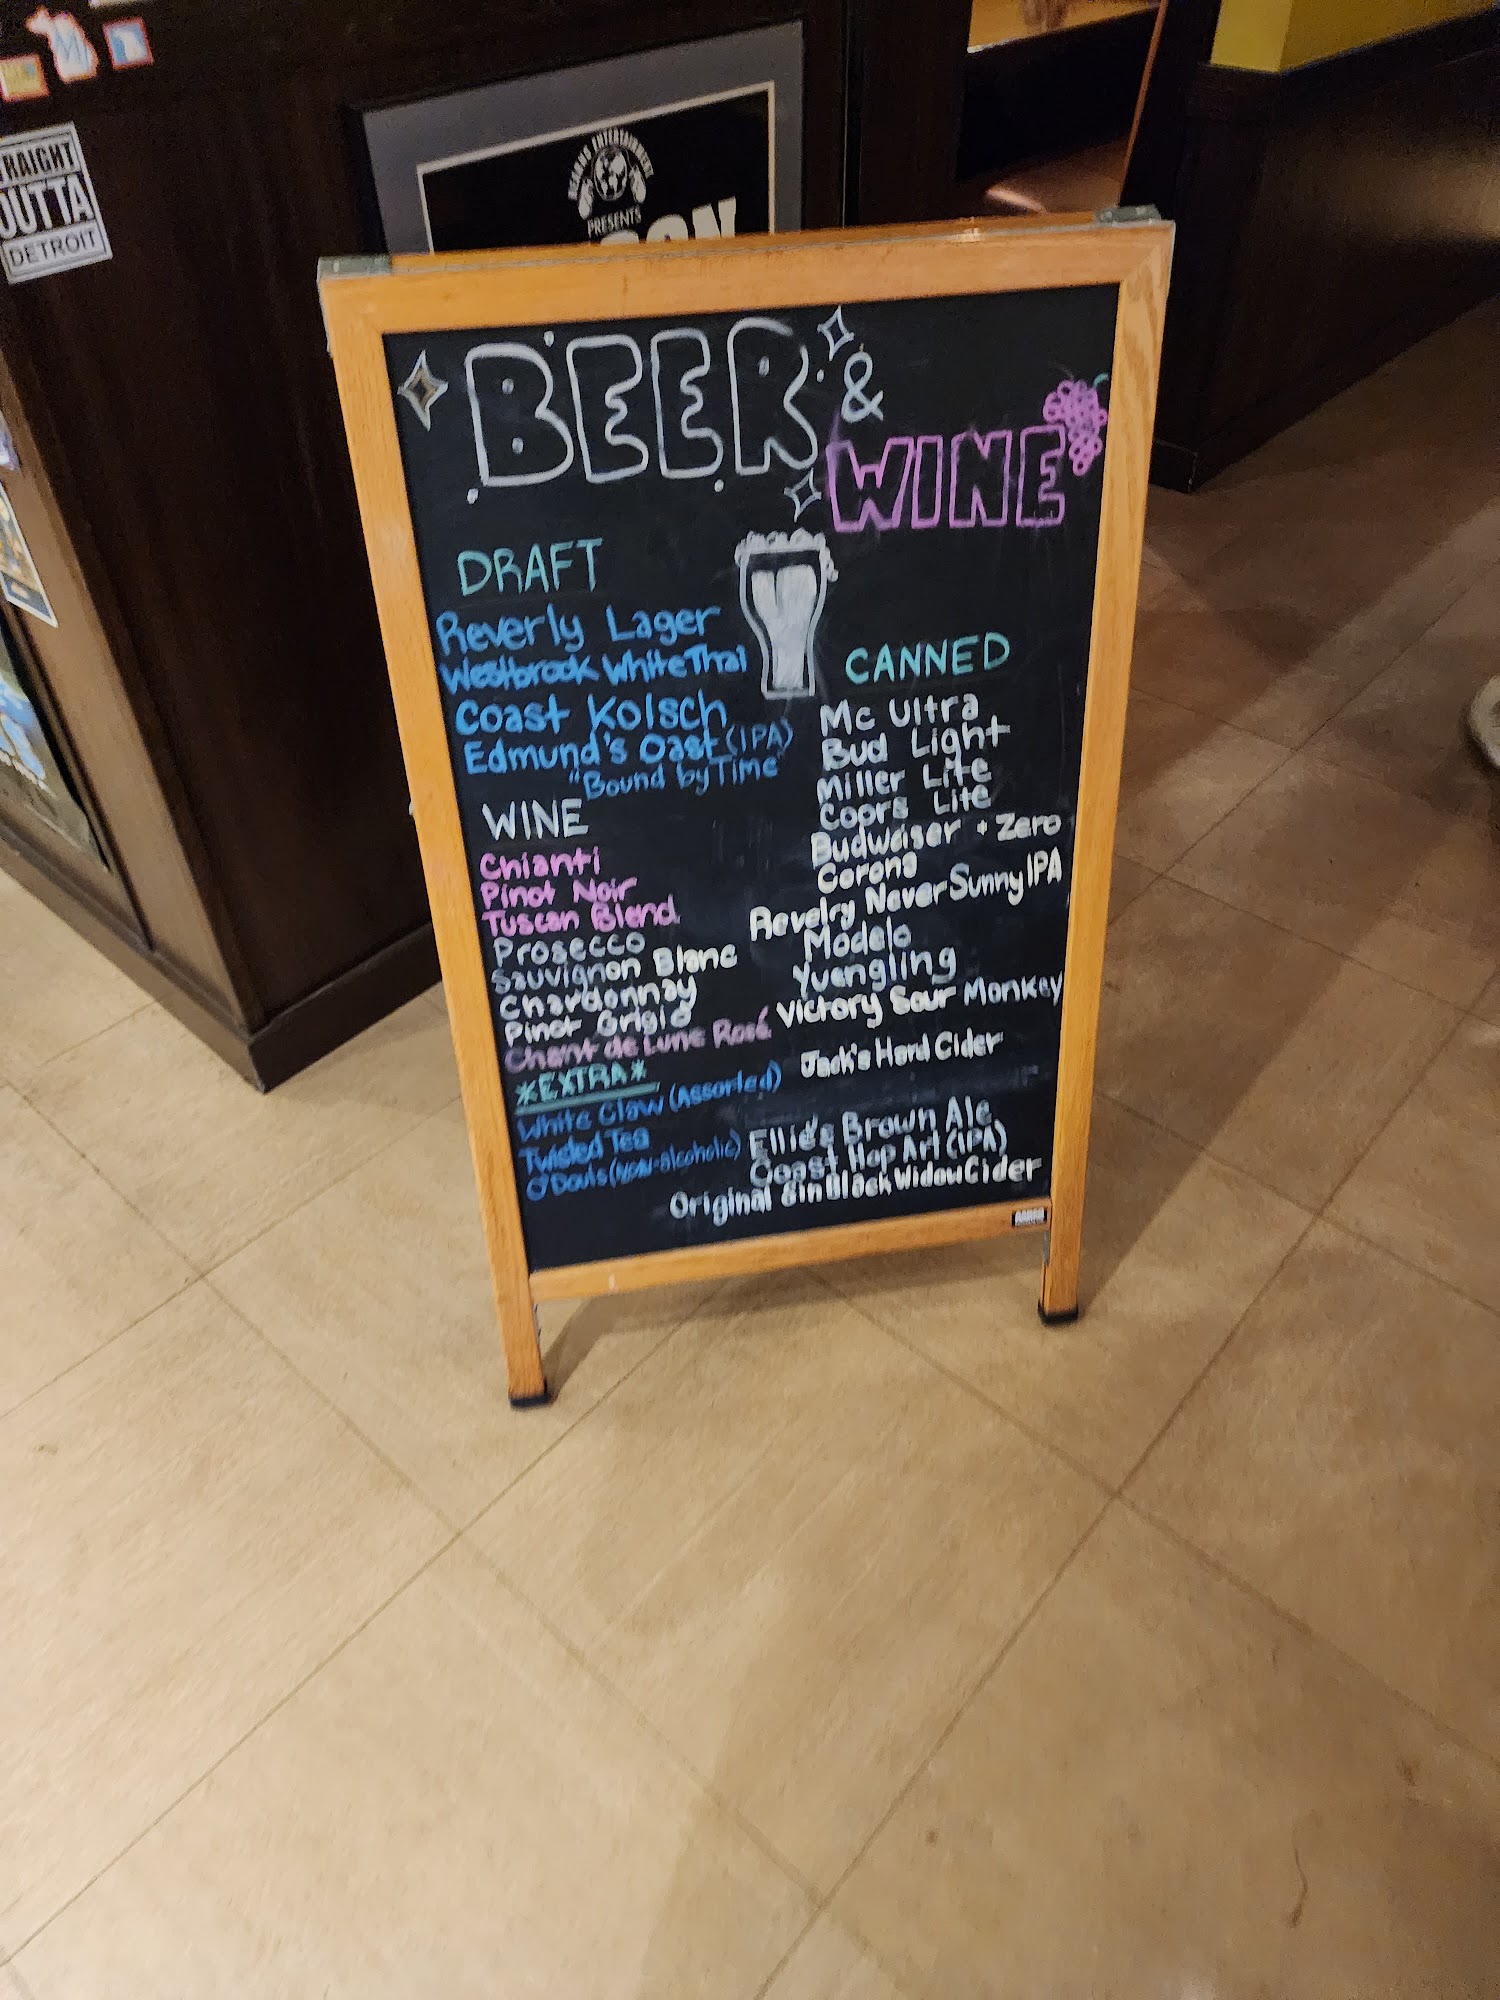 RAIGHT
OUTTA
DETROIT
ENTERTAINMENT
PRESENTS
BEER &
WINE
DRAFT
Reverly Lager
Westbrook White Thai
Coast Kolsch
Edmund's Oast (IPA)
"Bound by Time"
WINE
Chianti
Pinot Noir
Tuscan Blend
Prosecco
Sauvignon Blanc
Chardonnay
Pinot Grigio
Chant de Lune Rosé
*EXTRA*
White Claw (Assorted)
Twisted Tea
O'Douls (Non-alcoholic)
CANNED
Mc Ultra
Bud Light
Miller Lite
Coors Lite
Budweiser + Zero
Corona
Revelry Never Sunny IPA
Modelo
Yuengling
Victory Sour Monkey
Jack's Hard Cider
Ellie's Brown Ale
Coast Hop Art (IPA)
Original Sin Black Widow Cider